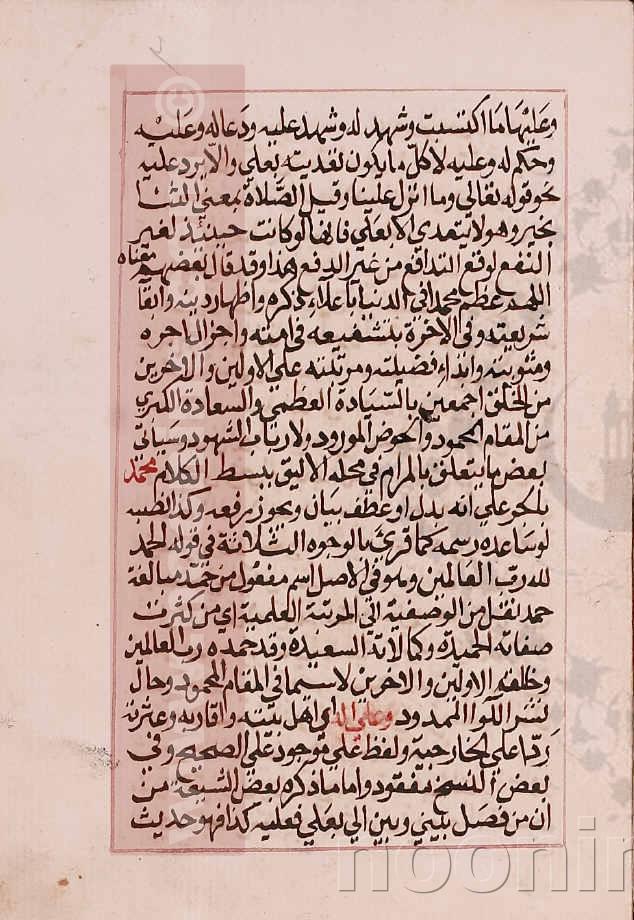 وعليها ما اكتسبت وشهد له وشهد عليه ودعاله وعليه
وحكم له وعليه لا كل ما يكون تعديته بعلى والا يرد عليه
نحو قوله تعالى وما انزل علينا وقيل الصلاة بمعنى الثنا
بخير وهو لا يتعدى الا بعلى فانها لو كانت حينئذ لغير
النفع لوقع التدافع من غير الدفع هذا وقد قال بعضهم معناه
اللهم عظم محمدا في الدنيا باعلاء ذكره واظهار دينه وابقا
شريعته وفي الاخرة بتشفيعه في امته واجزال اجره
ومثوبته وابداء فضيلته ومرتبته على الاولين والاخرين
من الخلق اجمعين بالسيادة العظمى والسعادة الكبرى
من المقام المحمود والحوض المورود ولارباب الشهود وسياتي
بعض ما يتعلق بالمرام في محله الاليق ببسط الكلام محمد
بالجر على انه بدل او عطف بيان ويجوز رفعه وكذا نصبه
لو ساعده رسمه كما قرئ بالوجوه الثلاثة في قوله الحمد
لله رب العالمين وهو في الاصل اسم مفعول من حمد مبالغة
حمد نقل من الوصفية الى المرتبة العلمية اي من كثرت
صفاته الحميدة وكمالاته السعيدة وقد حمده رب العالمين
وخلقه الاولين والاخرين لاسيما في المقام المحمود وحال
نشر اللوا الممدود وعلى اله اي اهل بيته واقاربه وعترته
ردا على الخارجية ولفظ على موجود على الصحيح وفي
بعض النسخ مفقود واما ما ذكره بعض الشيعة من
ان من فصل بيني وبين الي بعلى فعليه كذا فهو حديث
noonin